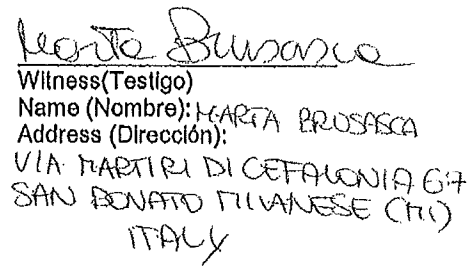 Marta Brusasca
Witness(Testigo)
Name (Nombre): MARTA BRUSASCA
Address (Dirección):
VIA MARTIRI DI CEFALONIA 67
SAN DONATO MILANESE (MI)
ITALY